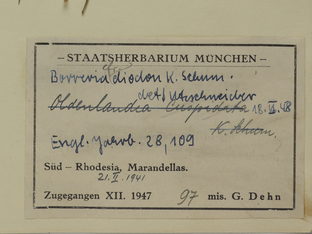 – STAATSHERBARIUM MÜNCHEN –
Borreria diodon K. Schum.
det. Merxmüller
Oldenlandia cuspidata 18. VI. 48
K. Schum.
Engl. Jahrb. 28, 109
Süd – Rhodesia, Marandellas.
21. II. 1941
Zugegangen XII. 1947 97 mis. G. Dehn